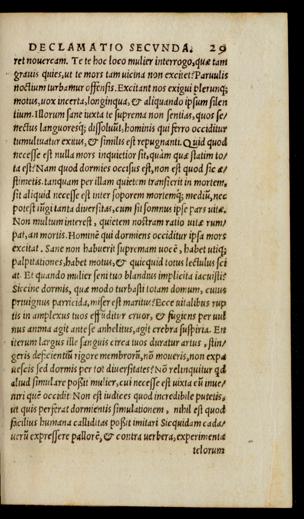 DECLAMATIO SECVNDA. 29
ret nouercam. Te te hoc loco mulier interrogo, quæ tam
grauis quies, ut te mors tam uicina non excitet? Paruulis
noctium turbamur offensis. Excitant nos exigui plerunq;
motus, uox incerta, longinqua, & aliquando ipsum silen
tium. Illorum sane iuxta te suprema non sentias, quos se/
nectus languoresq; dissoluūt, hominis qui ferro occiditur
tumultuatur exitus, & similis est repugnanti. Quid quod
necesse est nulla mors inquietior sit, quàm quæ statim to/
ta est? Nam quod dormies occisus est, non est quod sic æ/
stimetis. tanquam per illam quietem transierit in mortem.
sit aliquid necesse est inter soporem mortemq; mediū, nec
potest iūgi tanta diuersitas, cum sit somnus ipse pars uitæ.
Non multum interest, quietem nostram ratio uitæ rum/
pat, an mortis. Hominē qui dormiens occiditur ipsa mors
excitat. Sane non habuerit supremam uocē, habet utiq;
palpitationes, habet motus, & quicquid totus lectulus sci
at. Et quando mulier seni tuo blandius implicita iacuisti?
Siccine dormis, quæ modo turbasti totam domum, cuius
priuignus parricida, miser est maritus? Ecce uitalibus rup
tis in amplexus tuos effūditur cruor, & fugiens per uul
nus anima agit ante se anhelitus, agit crebra suspiria. En
iterum largus ille sanguis circa tuos duratur artus, strin/
geris deficientiū rigore membrorū, nō moueris, non expa
uescis sed dormis per tot diuersitates? Nō relinquitur qd
aliud simulare possit mulier, cui necesse est uixta eū inue/
niri què occidit. Non est iudices quod incredibile putetis,
ut quis perferat dormientis simulationem, nihil est quod
facilius humana calliditas possit imitari Sicquidam cada/
uerū expressere pallorē, & contra uerbera, experimenta
telorum